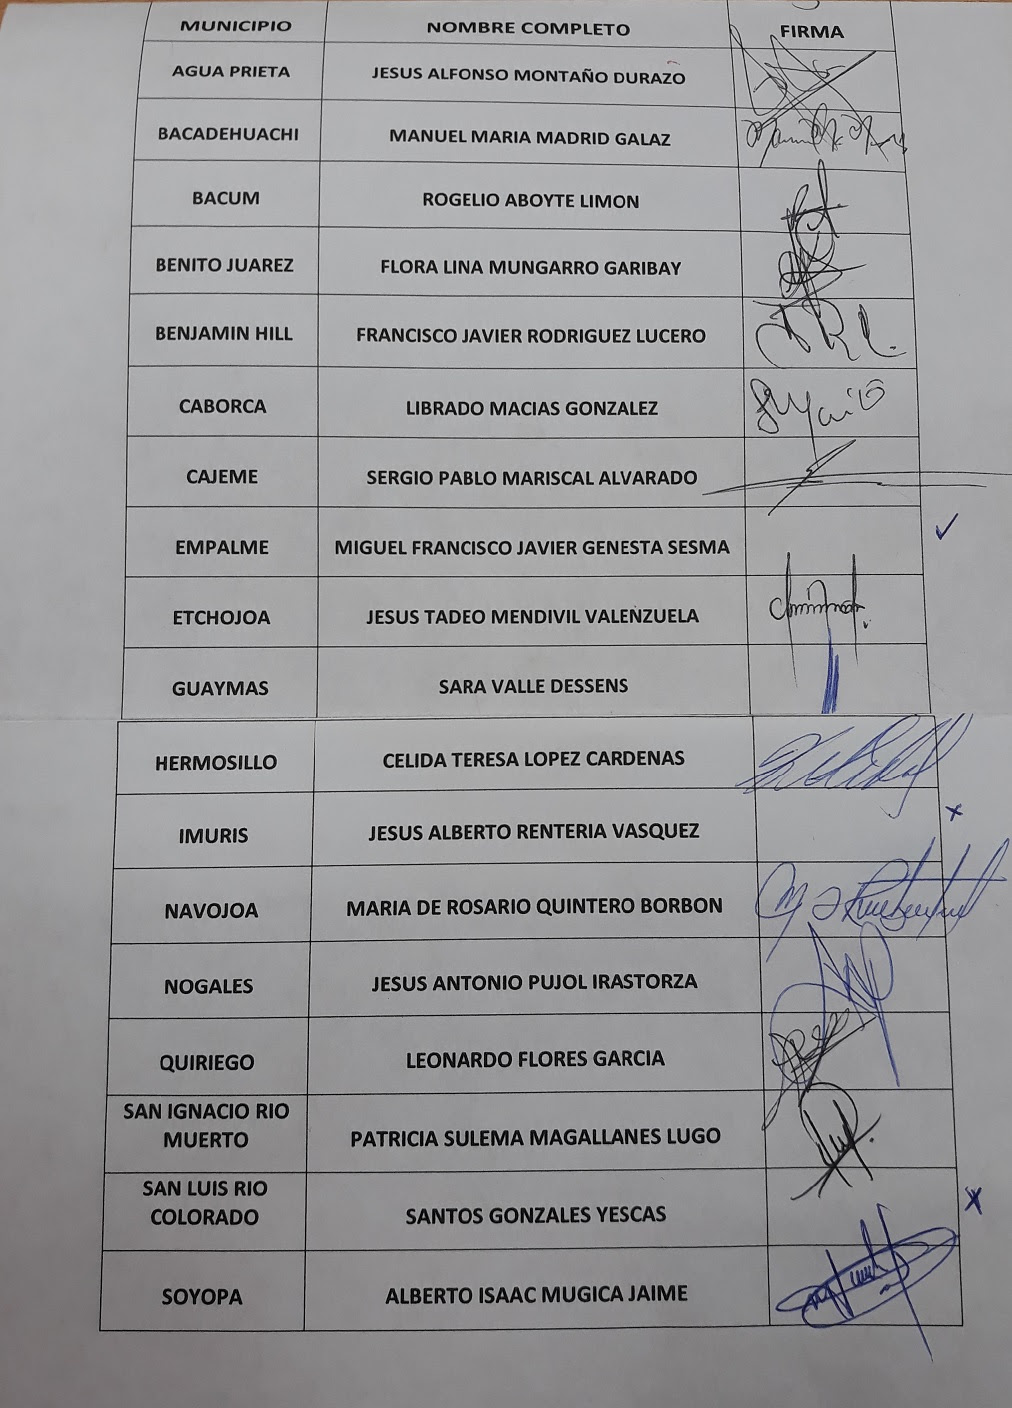 MUNICIPIO NOMBRE COMPLETO FIRMA
AGUA PRIETA JESUS ALFONSO MONTAÑO DURAZO
BACADEHUACHI MANUEL MARIA MADRID GALAZ
BACUM ROGELIO ABOYTE LIMON
BENITO JUAREZ FLORA LINA MUNGARRO GARIBAY
BENJAMIN HILL FRANCISCO JAVIER RODRIGUEZ LUCERO
CABORCA LIBRADO MACIAS GONZALEZ
CAJEME SERGIO PABLO MARISCAL ALVARADO
EMPALME MIGUEL FRANCISCO JAVIER GENESTA SESMA
ETCHOJOA JESUS TADEO MENDIVIL VALENZUELA
GUAYMAS SARA VALLE DESSENS
HERMOSILLO CELIDA TERESA LOPEZ CARDENAS
IMURIS JESUS ALBERTO RENTERIA VASQUEZ
NAVOJOA MARIA DE ROSARIO QUINTERO BORBON
NOGALES JESUS ANTONIO PUJOL IRASTORZA
QUIRIEGO LEONARDO FLORES GARCIA
SAN IGNACIO RIO
MUERTO PATRICIA SULEMA MAGALLANES LUGO
SAN LUIS RIO
COLORADO SANTOS GONZALES YESCAS
SOYOPA ALBERTO ISAAC MUGICA JAIME